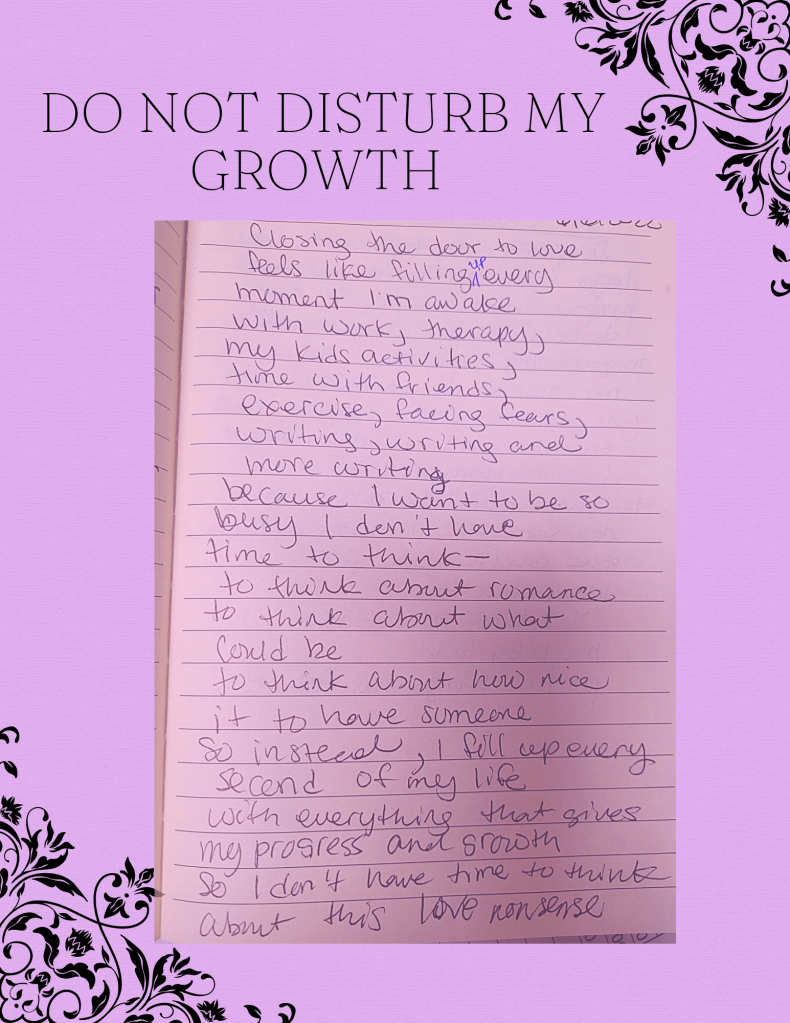 DO NOT DISTURB MY
GROWTH
Closing the door to love
feels like filling up every
moment I'm awake
with work, therapy,
my kids activities,
time with friends,
exercise, facing fears,
writing, writing and
more writing
because I want to be so
busy I don't have
time to think—
to think about romance
to think about what
could be
to think about how nice
it to have someone
So instead, I fill up every
second of my life
with everything that gives
my progress and growth
So I don't have time to think
about this love nonsense